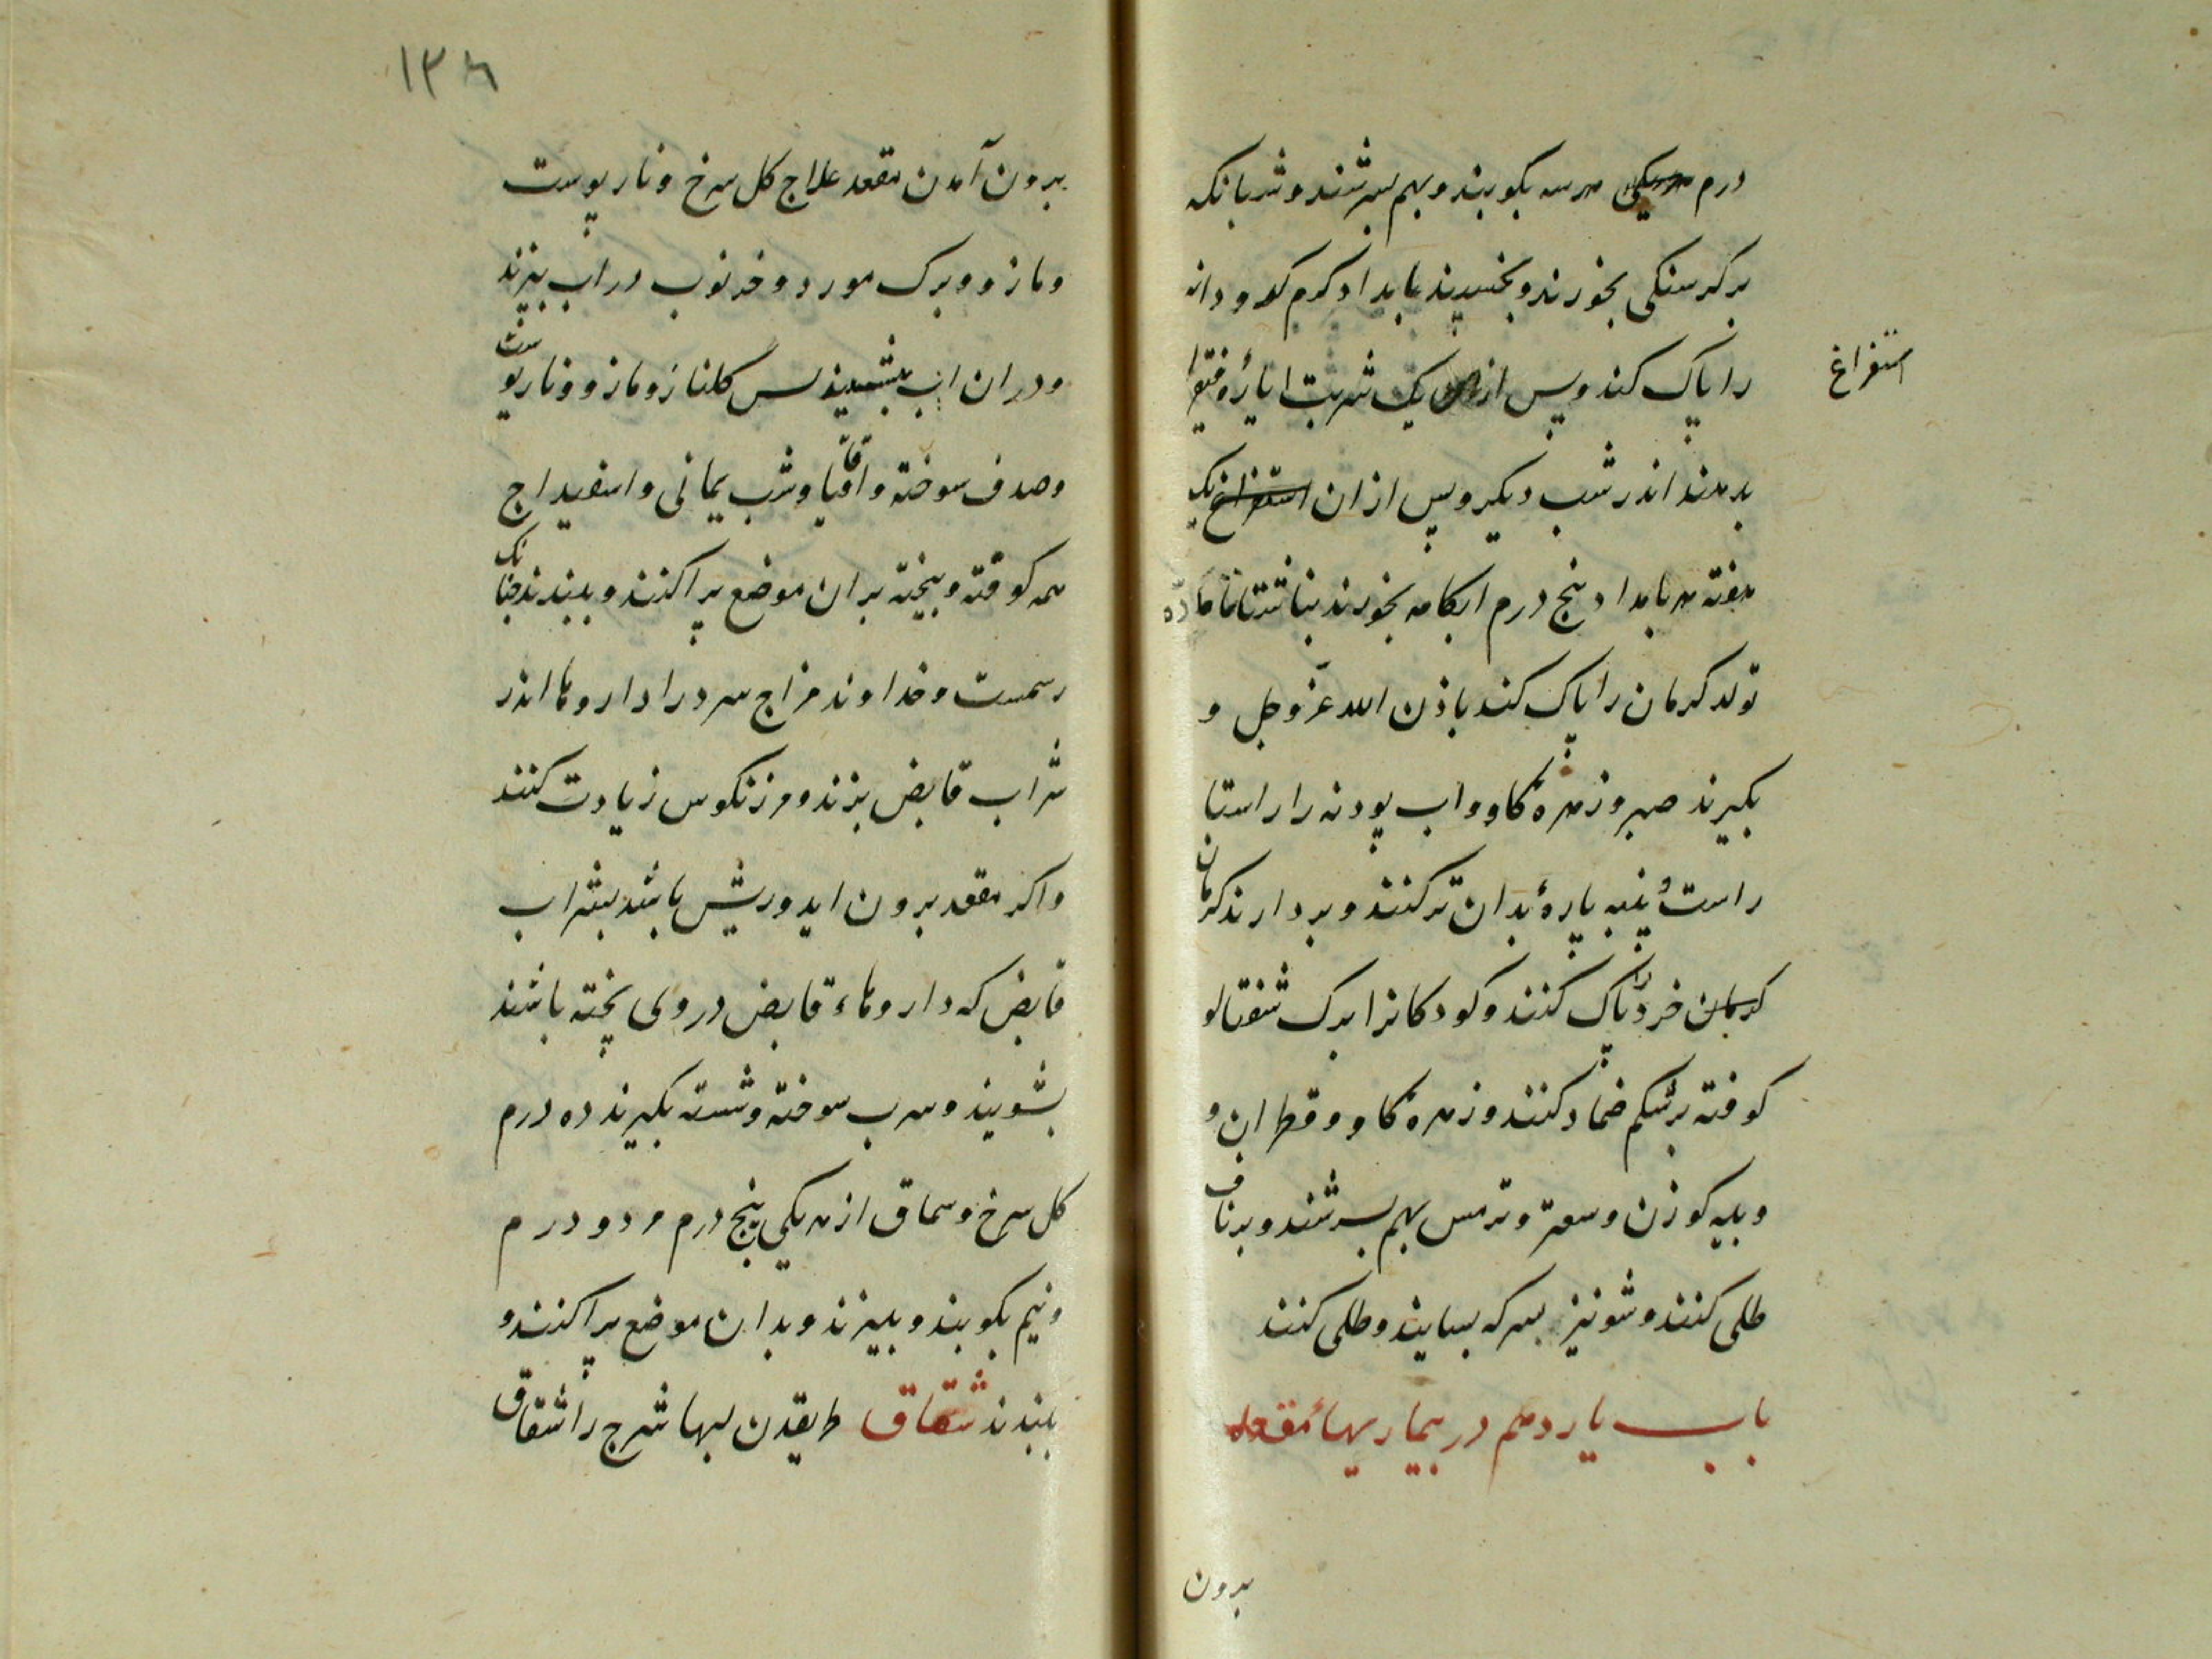 درم هر سه بکوبند و بهم بسرشند و شبانکه
بر کرسنکی بخورند و بخسپند بامداد کرم کدو دانه
را پاک کند و پس ازان یک شربت ایارهٔ فیقرا
استفراغ
بدهند اندر شب دیکر و پس از ان استفراغ یک
هفته هر بامداد پنج درم ابکامه بخورند بناشتا تا ماده
تولد کرمان را پاک کند باذن الله عزوجل و
بکیرند صبر و زهرهٔ کاو و اب پودنه را راستا
راست پنبه پارهٔ بدان تر کنند و بردارند کرمان
کرمان خرد پاک کنند و کودکانرا برک شفتالو
کوفته برشکم ضماد کنند و زهرهٔ کاو و قطران و
و پیه کوزن و سعتر و ترمس بهم بسرشند و بر ناف
طلی کنند و شونیز بسرکه بسایند و طلی کنند
باب یازدهم در بیماریهاء مقعد
برون
۱۳۸
برون آمدن مقعد علاج کل سرخ و نارپوست
و مازو و برک مورد و خرنوب در اب بپزند
و در ان اب بنشیند پس کلنار و مازو و نارپوست
و صدف سوخته و اقاقیا و شب یمانی و اسفیداج
همه کوفته و بیخته بران موضع پراکنند و ببندند چنانک
رسمست و خداوند مزاج سرد را داروها اندر
شراب قابض پزند و مرزنکوس زیادت کنند
و اکر مقعد برون اید و ریش باشد بشراب
قابض که داروهاء قابض در وی پخته باشند
بشویند و سرب سوخته و شسته بکیرند ده درم
کل سرخ و سماق از هر یکی پنج درم مر دو درم
و نیم بکوبند و ببیزند و بدان موضع پراکنند و
ببندند شقاق طریقدن لبها شرج را شقاق